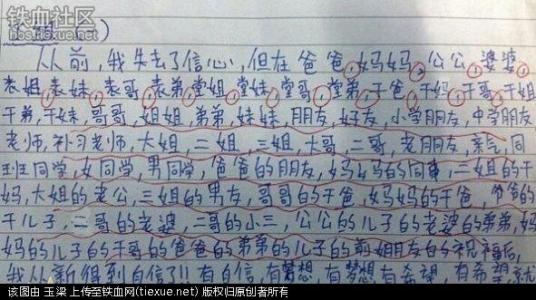 铁血社区
tiexue.net
从前,我失去了信心,但在爸爸,妈妈,公公,婆婆
表姐,表妹,表哥,表弟,堂姐,堂妹,堂哥,堂弟,干爸,干妈,干哥,干姐
干弟,干妹,哥哥,姐姐,弟弟,妹妹,朋友,好友,小学朋友,中学朋友
老师,补习老师,大姐,二姐,三姐,大哥,二哥,老朋友,亲戚,同
班同学,女同学,男同学,爸爸的朋友,妈妈的同事,二姐的干
妈,大姐的老公,三姐的男友,哥哥的干爸,妈妈的干爸,爷爷的
干儿子,二哥的老婆,二哥的小三,公公的儿子的老婆的弟弟,妈
妈的儿子的干哥的爸爸的弟弟的儿子的前姐朋友的祝福后,
我从新得到自信了!!有自信,有梦想,有梦想有希望,有希望就
该图由 玉梁 上传至铁血网(tiexue.net) 版权归原创者所有